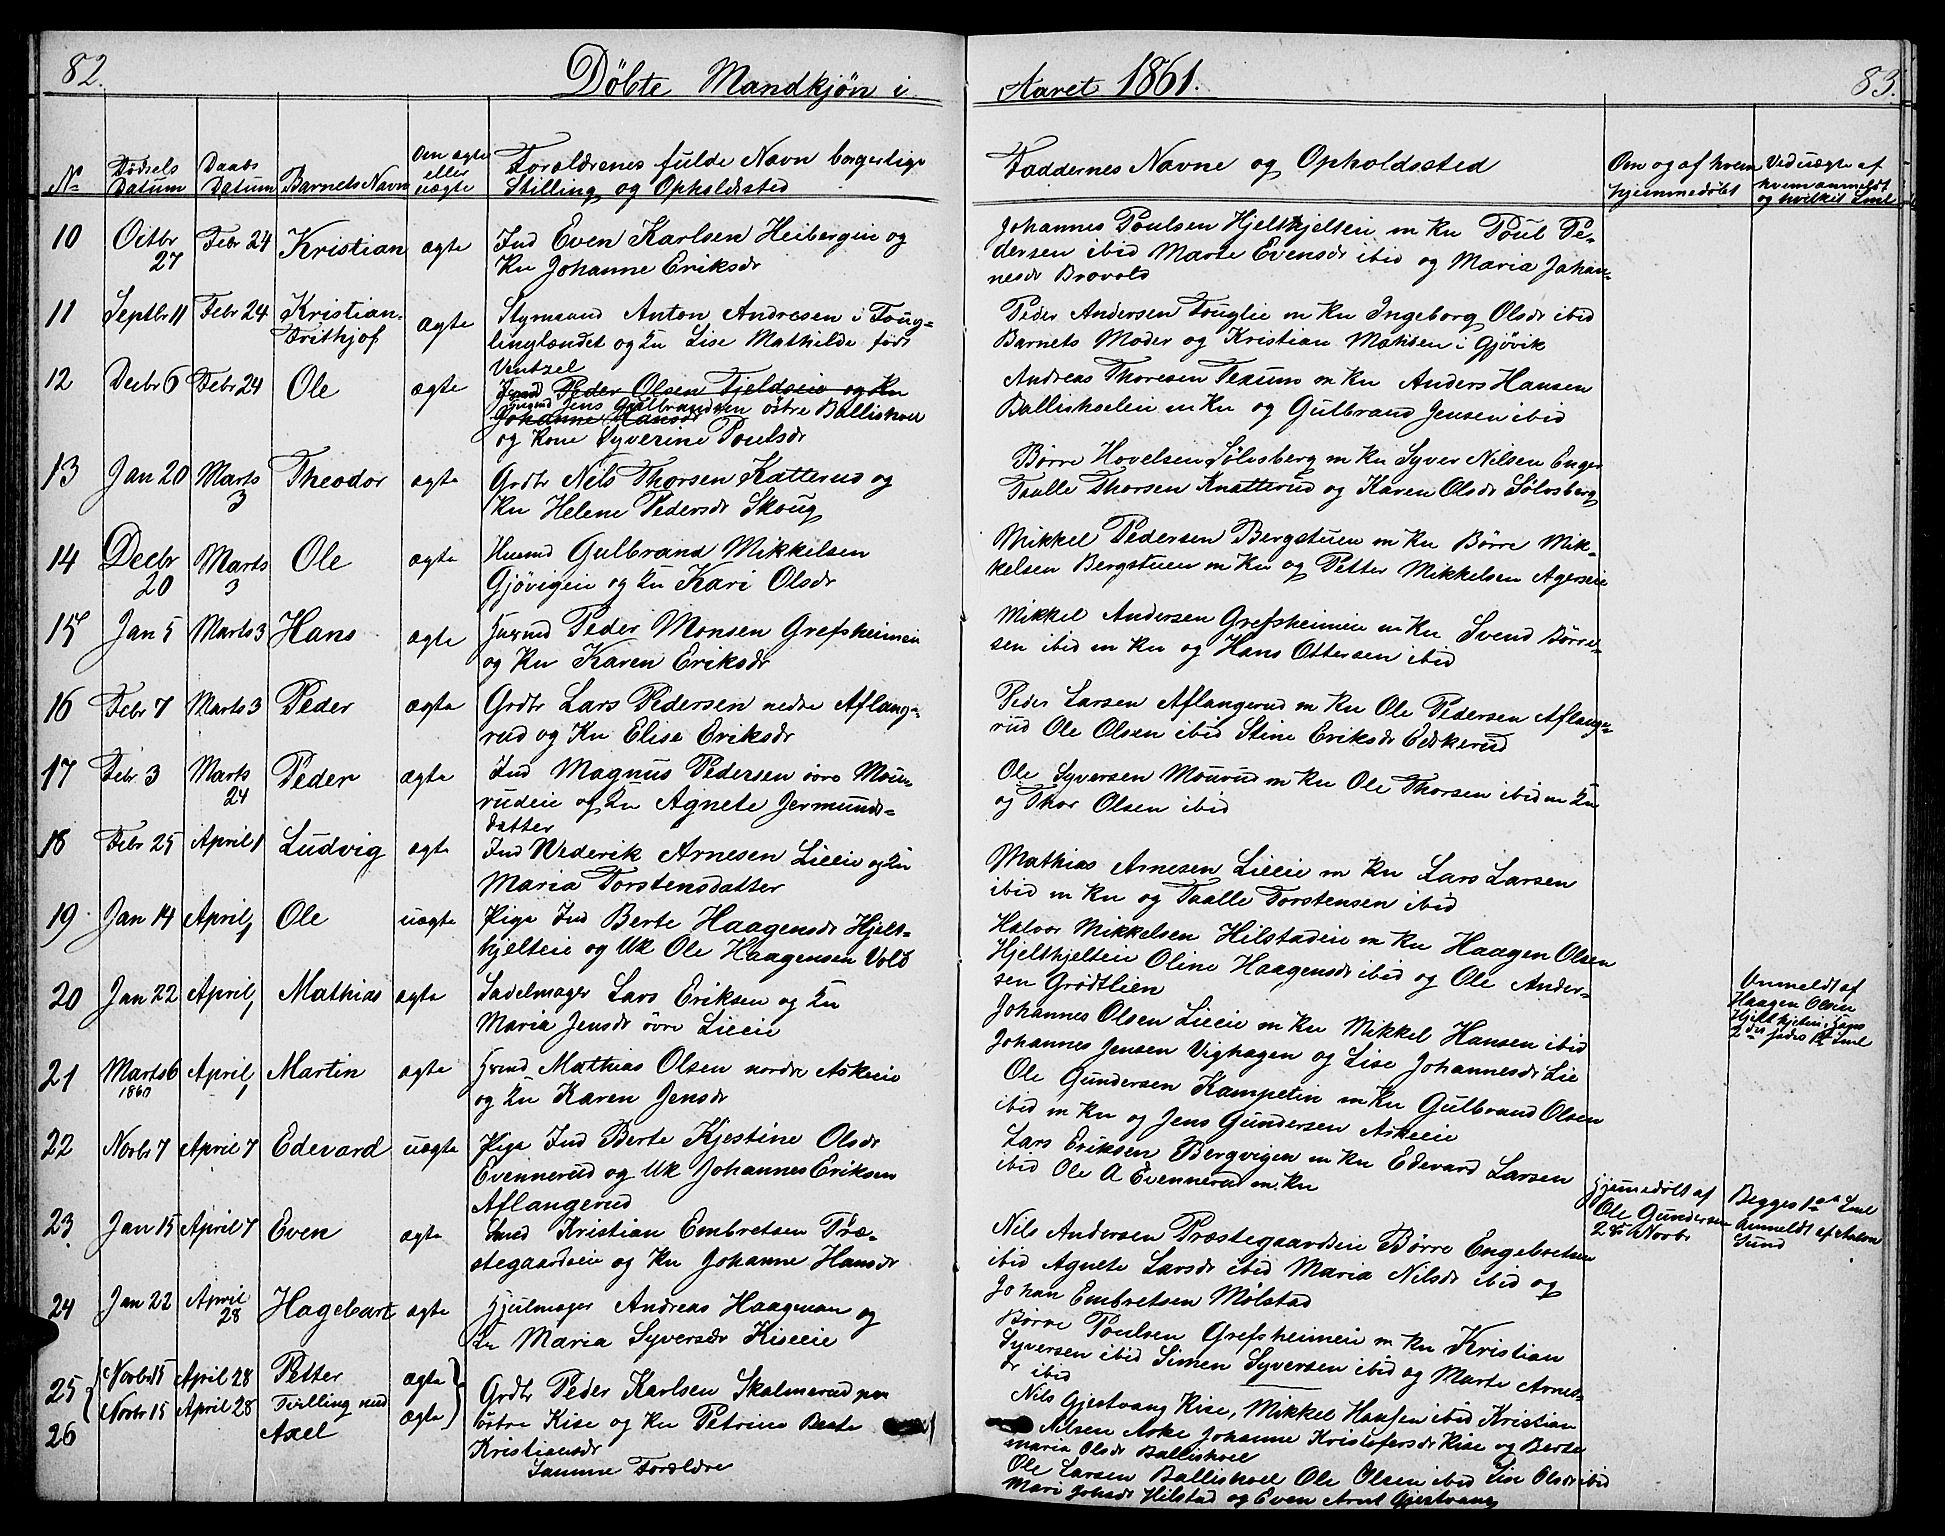 82.
Døbte Mandkjøn i
Aaret 1861.
83.
No
Fødsels Datum
Daabs Datum
Barnets Navn
Om ægte eller uægte
Forældrenes fulde Navn borgerlige
Stilling og Opholdssted
Faddernes Navne og Opholdssted
Om og af hvem hjemmedøbt
Ved uægte af hvem anmeldt og hvilket Leiel
10 Octbr 27 Febr 24 Kristian ægte
Ind Even Karlsen Heibergeie og
Ku Johanne Eriksdr
Johannes Poulsen Hjelthjelteie m Ku Poul Pe-
dersen ibid Marte Evensdr ibid og Maria Johan-
nesdr Brovold
11 Septbr 11 Febr 24 Kristian Frithjof ægte
Styrmand Anton Andresen i Foug-
linglændet og Ku Lise Mathilde født
Ventzel
Peder Andersen Fouglie m Ku Ingeborg Olsdr ibid
Barnets Moder og Kristian Madsen i Gjøvik
12 Decbr 6 Febr 24 Ole ægte
Peder Olsen Fjeldseie og Ku
Johanne Hansdr
Jens Gulbrandsen østre Ballishoel
og Kone Syverine Poulsdr
Andreas Thoresen Texum m Ku Anders Hansen
Ballishoeleie m Ku og Gulbrand Jensen ibid
13 Jan 20 Marts 3 Theodor ægte
Grdbr Nils Thorsen Katterud og
Ku Helene Pedersdr Skoug
Børre Hovelsen Sølvsberg m Ku Syver Nilsen Enger
Taalle Thorsen Knatterud og Karen Olsdr Sølvsberg
14 Decbr 20 Marts 3 Ole ægte
Husmd Gulbrand Mikkelsen
Gjøvigeie og Ku Kari Olsdr
Mikkel Pedersen Bergstuen m Ku Børre Mik-
kelsen Bergstuen m Ku og Petter Mikkelsen Agerseie
15 Jan 5 Marts 3 Hans ægte
Husmd Peder Monsen Grefsheimeie
og Ku Karen Eriksdr
Mikkel Andersen Grefsheimeie m Ku Svend Børre-
sen ibid m Ku og Hans Ottersen ibid
16 Febr 7 Marts 3 Peder ægte
Grdbr Lars Pedersen nedre Aflang-
rud og Ku Elise Eriksdr
Peder Larsen Aflangerud m Ku Ole Pedersen Aflange-
rud Ole Olsen ibid Stine Eriksdr
17 Febr 3 Marts 24 Peder ægte
Ind Magnus Pedersen øvre Mou-
rudeie og Ku Agnete Jermunds-
datter
Ole Syversen Mourud m Ku Ole Thorsen ibid m Ku
og Thor Olsen ibid
18 Febr 25 April 1 Ludvig ægte
Ind Wederik Arnesen Lieeie og Ku
Maria Torstensdatter
Mathias Arnesen Lieeie m Ku Lars Larsen
ibid m Ku og Taalle Torstensen ibid
19 Jan 14 April 1 Ole uægte
Pige Ind Berte Haagensdr Hjelt-
hjelteie og Uk Ole Haagensen Vold
Halvor Mikkelsen Hilstadeie m Ku Haagen Olsen
Hjelthjelteie Oline Haagensdr ibid og Ole Ander-
sen Grødtlien
Anmeldt af
Haagen Olsen
20 Jan 22 April 1 Mathias ægte
Sadelmager Lars Eriksen og Ku
Maria Jensdr øvre Lieeie
Johannes Olsen Lieeie m Ku Mikkel Hansen ibid
Johannes Jensen Vighagen og Lise Johannesdr Lie
21 Marts 6 1860 April 1 Martin ægte
Husmd Mathias Olsen nordre Askeeie
og Ku Karen Jensdr
Ole Gundersen Kampetin m Ku Gulbrand Olsen
ibid m Ku og Jens Gundersen Askeeie
22 Novbr 7 April 7 Edevard uægte
Pige Ind Berte Kjestine Olsdr
Evennerud og Uk Johannes Eriksen
Aflangerud
Lars Eriksen Bergvigen m Ku Edevard Larsen
ibid Ole A Evennerud m Ku
Hjemmedøbt af
Ole Gundersen
Novbr
Begges 1ste Leiel
Anmeldt af
Lund
23 Jan 15 April 7 Even ægte
Kristian Embretsen Præ-
stegaardseie og Ku Johanne Hansdr
Nils Andersen Præstegaardseie Børre Engebretsen
ibid Agnete Larsdr ibid Maria Nilsdr ibid og
Johan Embretsen Mølstad
24 Jan 22 April 28 Hagebart ægte
Hjulmager Andreas Haagman og
Ku Maria Syversdr Kiseeie
Børre Poulsen Grefsheimeie m Ku Kristian
Syversen ibid Simen Syversen ibid og Marte Arnes-
dr ibid
25 Novbr 15 April 28 Petter ægte
Tvilling med
26 Novbr 15 April 28 Axel ægte
Grdbr Peder Karlsen Skalmerud paa
østre Kise og Ku Petrine Beate
Kristiansdr
Samme Forældre
Nils Gjestvang Kise, Mikkel Hansen ibid Kristian
Nilsen Aske Johanne Kristofersdr Kise og Berte
maria Olsdr Ballishoel
Ole Larsen Ballishoel Ole Olsen ibid Lise Olsdr ibid
Mari Johsdr Hilstad og Even Arnt Gjestvang